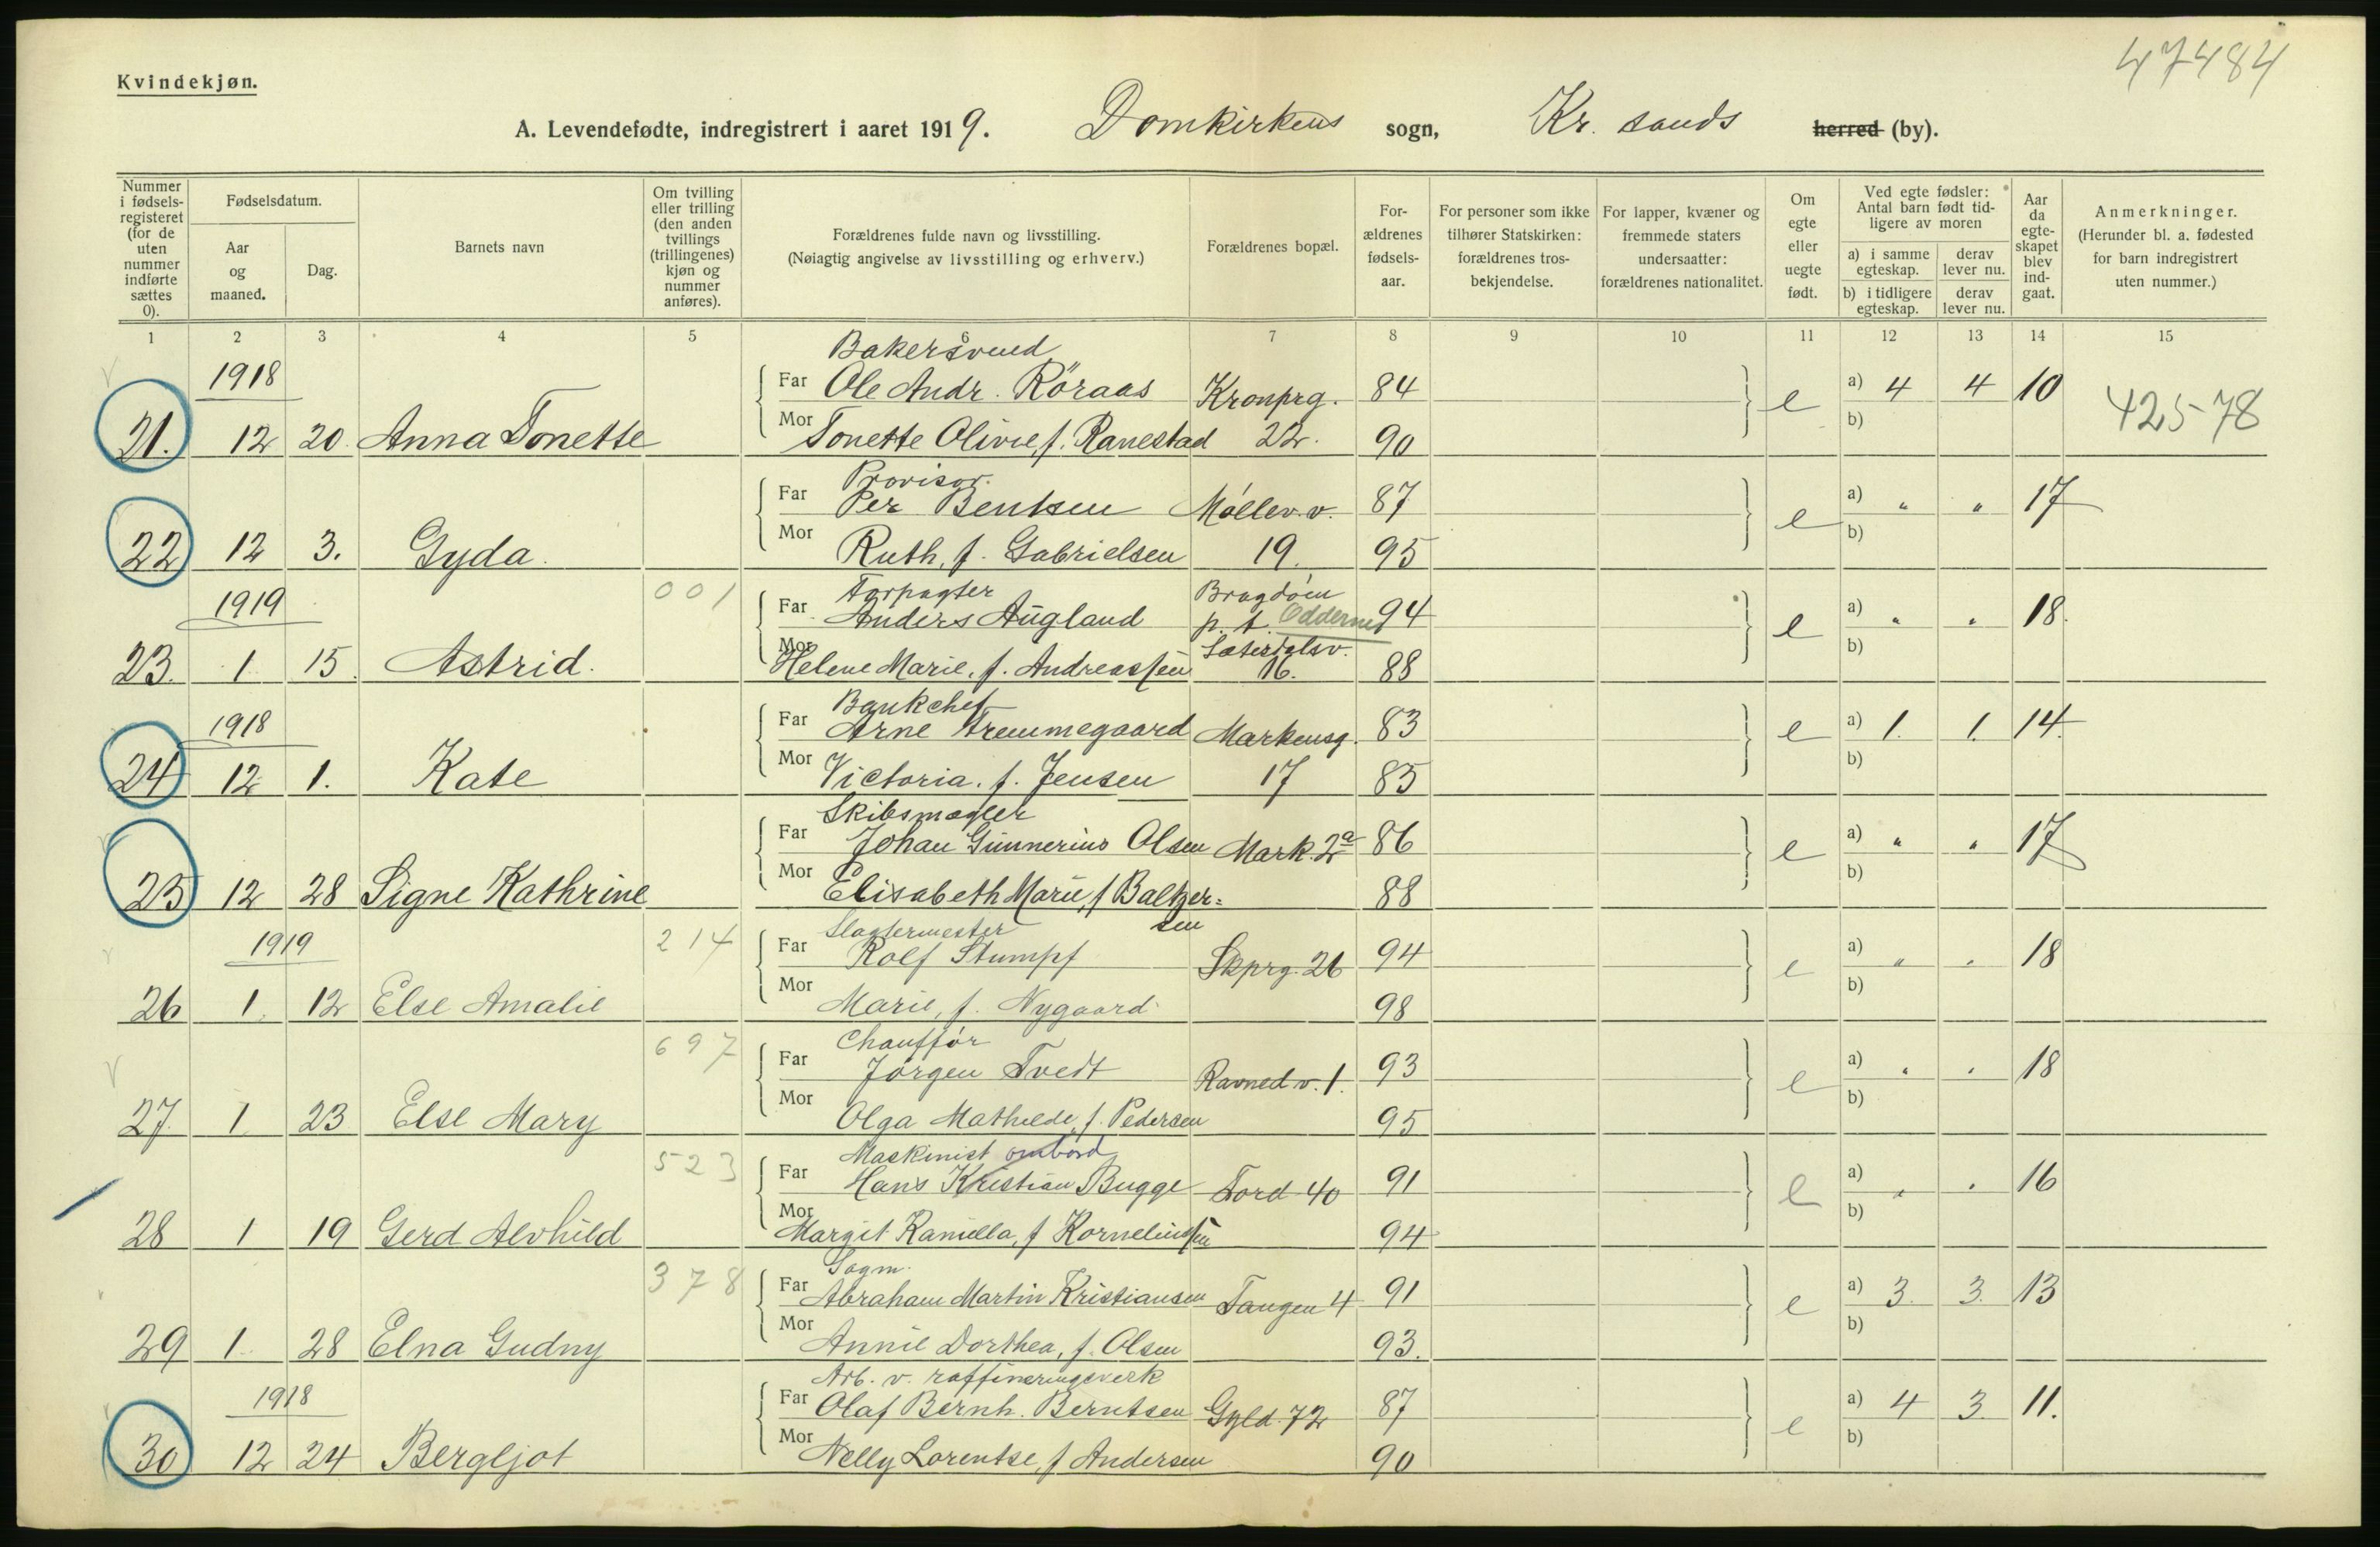 47484
Kvindekjøn.
A. Levendefødte, indregistrert i aaret 1919. Domkirkens sogn, Kr. sands herred (by).
Nummer i fødsels-registeret (for de uten nummer indførte sættes 0).
Fødselsdatum.
Aar og maaned.
Dag.
Barnets navn
Om tvilling eller trilling (den anden tvillings (trillingenes) kjøn og nummer anføres).
Forældrenes fulde navn og livsstilling.
(Nøiagtig angivelse av livsstilling og erhverv.)
Forældrenes bopæl.
For-ældrenes fødsels-aar.
For personer som ikke tilhører Statskirken: forældrenes tros-bekjendelse.
For lapper, kvæner og fremmede staters undersaatter: forældrenes nationalitet.
Om egte eller uegte født.
Ved egte fødsler: Antal barn født tid-ligere av moren
a) i samme egteskap.
derav lever nu.
b) i tidligere egteskap.
derav lever nu.
Aar da egte-skapet blev ind-gaat.
Anmerkninger.
(Herunder bl. a. fødested for barn indregistrert uten nummer.)
1 2 3 4 5 6 7 8 9 10 11 12 13 14 15
1918 Bakersvend
Far Ole Andr. Röraas Kronprg. 84 e a) 4 4 10 42578
21. 12 20. Anna Tonette Mor Tonette Olivie, f. Ranestad 22. 90 b)
Provisor.
Far Per Bentsen Møllev. v. 87 e a) " " 17
22 12 3. Gyda. Mor Ruth, f. Gabrielsen 19. 95 b)
1919 001 Forpagter Bragdøen
Far Anders Augland p. t. Oddernes 94 e a) " " 18.
23. 1 15. Astrid. Mor Helene Marie, f. Andreassen Sætersdalsv. 16. 88 b)
1918 Bankchef
Far Arne Fremmegaard Markensg. 83 e a) 1. 1. 14.
24 12 1. Kate Mor Victoria. f. Jensen 17 85 b)
Skibsmægler
Far Johan Gunnerius Olsen Mark. 2a 86 e a) " " 17
25 12 28 Signe Kathrine Mor Elisabeth Marie, f Baltzer= 88 b)
sen
1919 214 Slagtermester
Far Rolf Stumpf Skprg. 26 94 e a) " " 18
26 1 12 Else Amalie Mor Marie, f. Nygaard 98 b)
697 Chauffør
Far Jørgen Tvedt Ravned v. 1. 93 e a) " " 18
27. 1 23 Else Mary Mor Olga Mathilde, f. Pedersen 95 b)
523 Maskinist ombord
Far Hans Kristian Bugge Tord 40 91 e a) " " 16
28 1 19 Gerd Alvhild Mor Margit Kamilla, f Korneliussen 94 b)
378 Sagm.
Far Abraham Martin Kristiansen Tangen 4 91 e a) 3. 3. 13
29 1. 28 Elna Gudny Mor Annie Dorthea, f. Olsen 93. b)
1918 Arb. v. raffineringsverk
Far Olaf Bernh. Berntsen Gyld. 72 87 e a) 4 3. 11.
30 12 24 Bergljot Mor Nelly Lorentse, f Andersen 90 b)